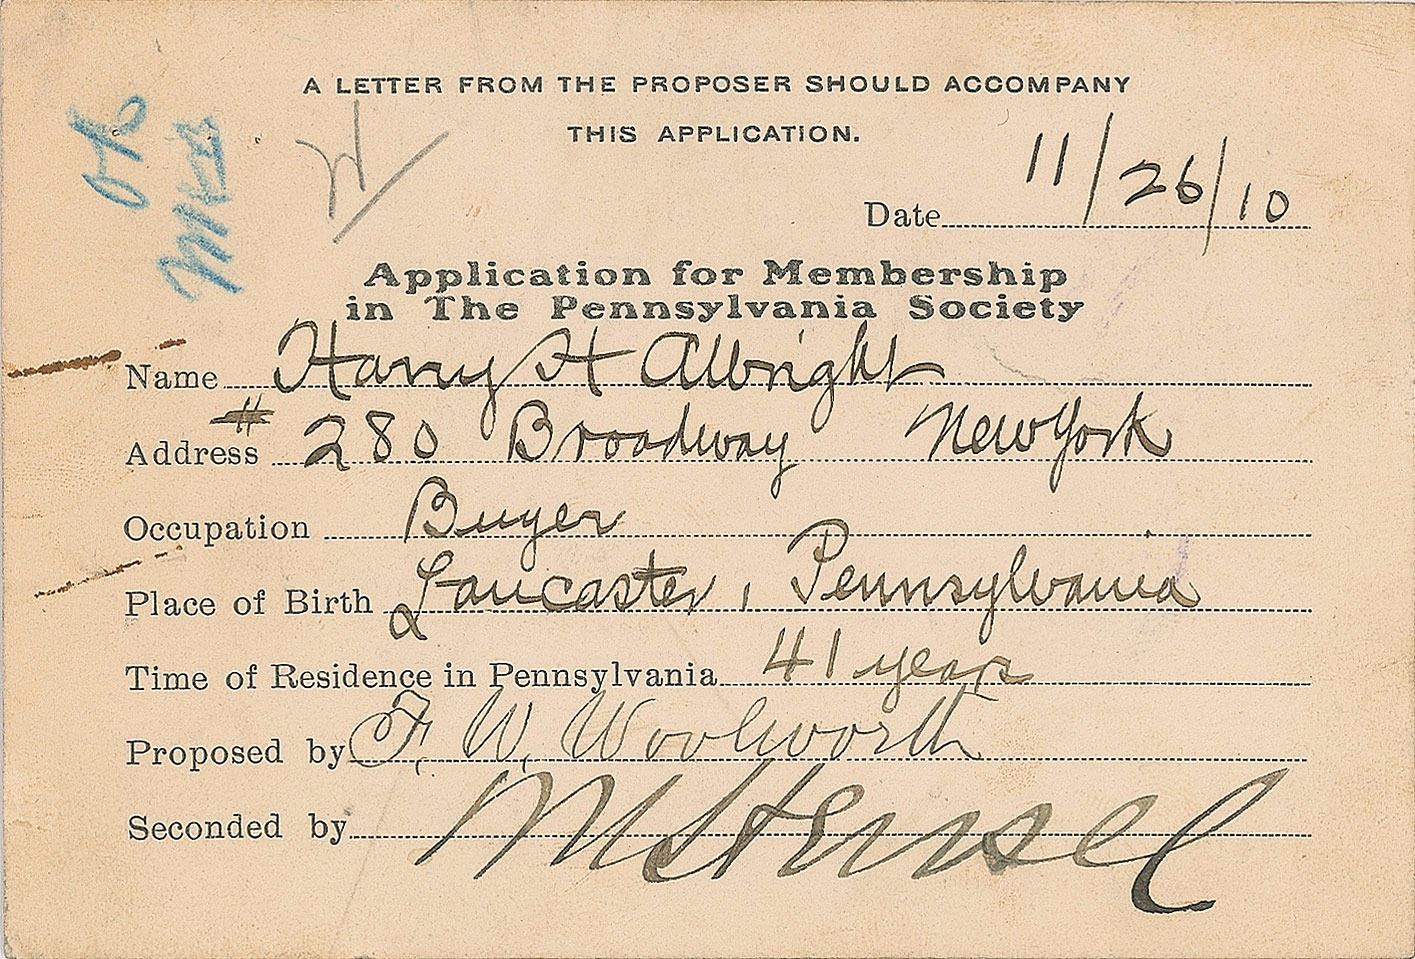 A LETTER FROM THE PROPOSER SHOULD ACCOMPANY
THIS APPLICATION.
OK
Date 11/26/10
Application for Membership
in The Pennsylvania Society
Name Harry H Albright
Address # 280 Broadway New York
Occupation Buyer
Place of Birth Lancaster, Pennsylvania
Time of Residence in Pennsylvania 41 years
Proposed by F. W. Woolworth
Seconded by Hensel